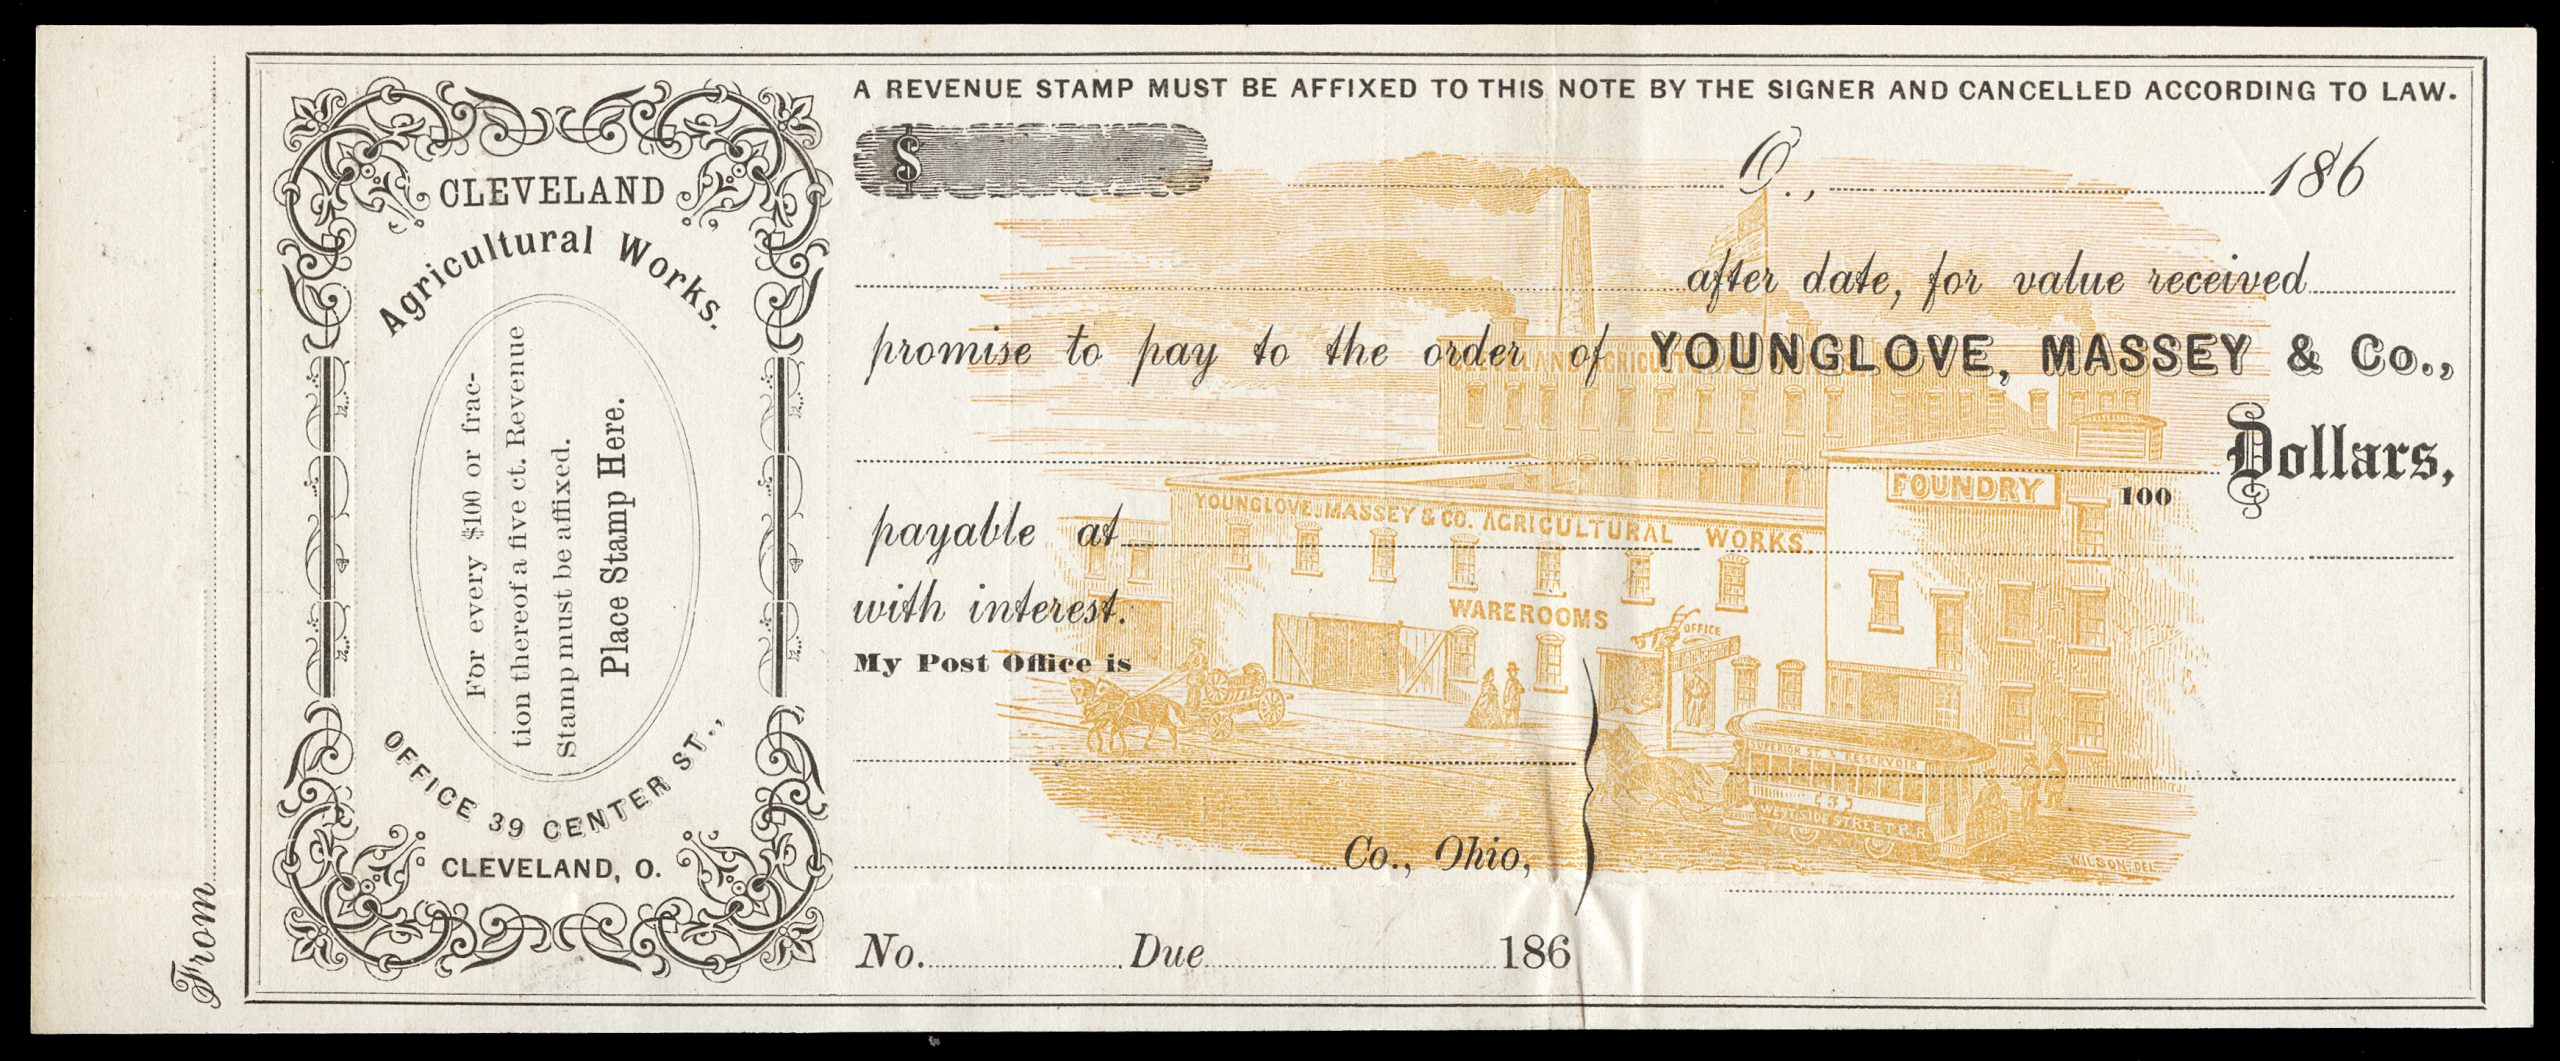 From
CLEVELAND
Agricultural Works.
For every $100 or frac-
tion thereof a five ct. Revenue
Stamp must be affixed.
Place Stamp Here.
OFFICE 39 CENTER ST.,
CLEVELAND, O.
A REVENUE STAMP MUST BE AFFIXED TO THIS NOTE BY THE SIGNER AND CANCELLED ACCORDING TO LAW.
$ O., 186
after date, for value received
promise to pay to the order of YOUNGLOVE, MASSEY & Co.,
Dollars,
100
payable at
with interest.
My Post Office is
Co., Ohio,
No. Due 186
YOUNGLOVE, MASSEY & CO. AGRICULTURAL WORKS.
FOUNDRY
WAREROOMS
OFFICE
SUPERIOR ST. & RESERVOIR
WEST SIDE STREET R.R
WILSON. DEL